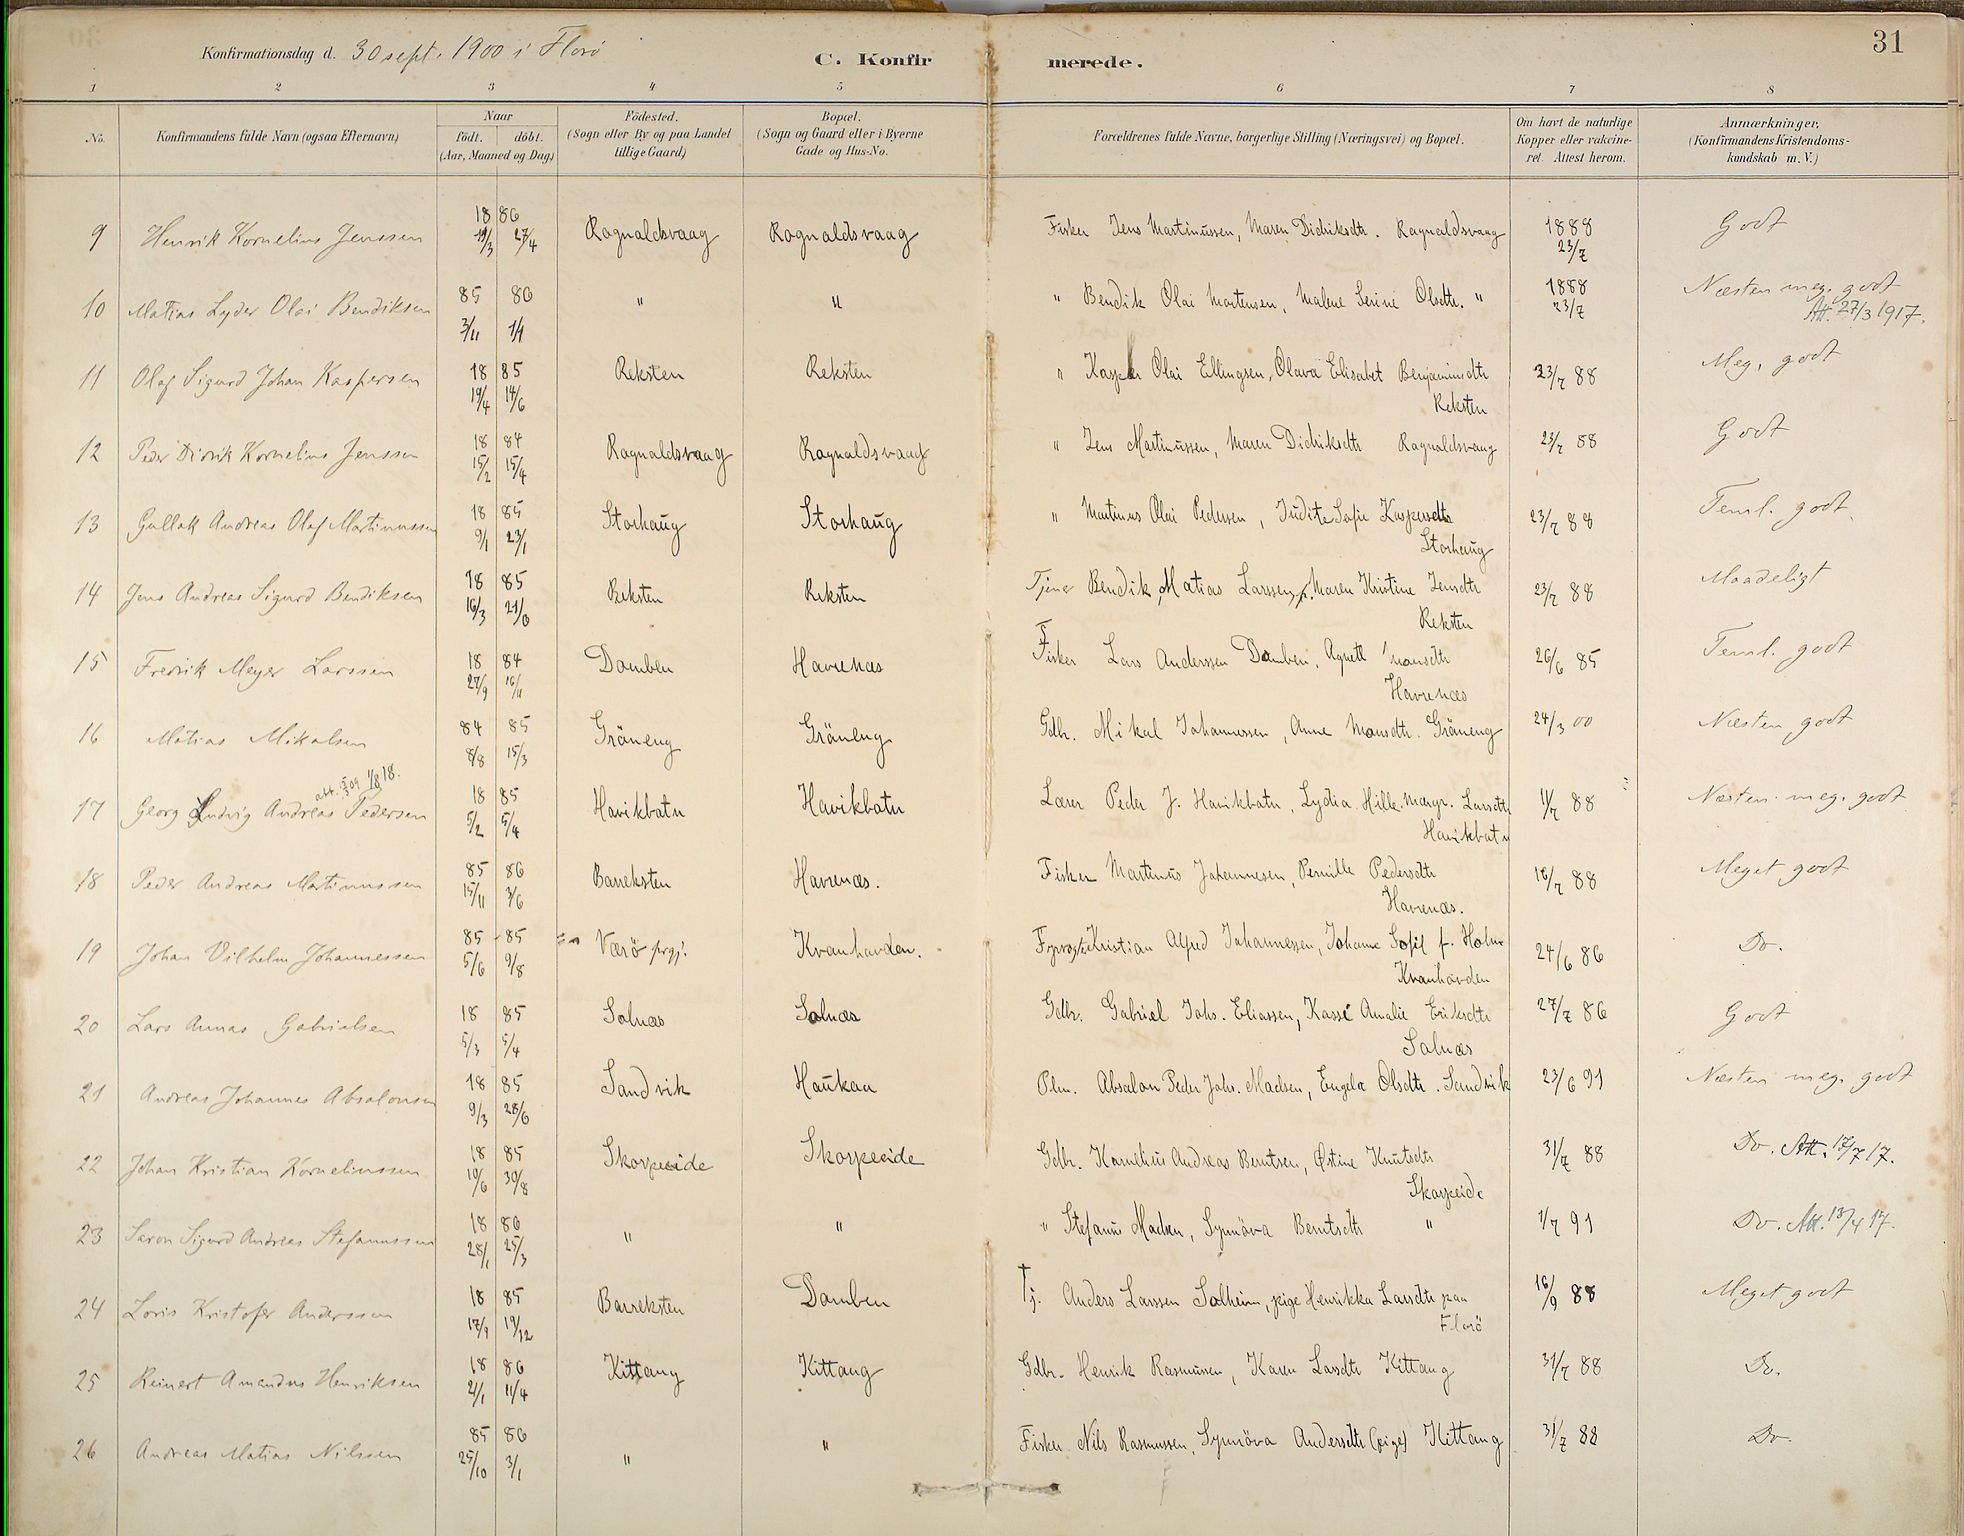 31
Konfirmationsdag d. 30 sept. 1900 i Florö
C. Konfirmerede.
1 2 3 4 5 6 7 8
No. Konfirmandens fulde Navn (ogsaa Efternavn) Naar födt. döbt. (Aar, Maaned og Dag) Födested. (Sogn eller By og paa Landet tillige Gaard) Bopæl. (Sogn og Gaard eller i Byerne Gade og Hus-No. Forældrenes fulde Navne, borgerlige Stilling (Næringsvei) og Bopæl. Om havt de naturlige Kopper eller vakcineret. Attest herom. Anmærkninger, (Konfirmandens Kristendomskundskab m. V.)
9 Henrik Kornelius Jenssen 1886 19/3 27/4 Rognaldsvaag Rognaldsvaag Fisker Jens Martinussen, Maren Didriksdtr. Rognaldsvaag 1888 23/7 Godt
10 Matias Lyder Olai Bendiksen 85 86 3/11 1/1 " " " Bendik Olai Mortensen, Malene Serine Olsdtr. " 1888 23/7 Næsten meg. godt
Att. 27/3 1917.
11 Olaf Sigurd Johan Kaspersen 18 85 19/4 14/6 Reksten Reksten " Kasper Olai Ellingsen, Olava Elisabet Benjaminsdtr 23/7 88 Meg. godt
Reksten
12 Peder Didrik Kornelius Jenssen 18 84 15/2 15/4 Rognaldsvaag Rognaldsvaag " Jens Martinussen, Maren Didriksdtr Rognaldsvaag 23/7 88 Godt
13 Gullak Andreas Olaf Martinussen 18 85 9/1 23/1 Storhaug Storhaug " Martinus Olai Pedersen, Judite Sofie Kaspersdtr 23/7 88 Teml. godt.
Storhaug
14 Jens Andreas Sigurd Bendiksen 18 85 16/3 21/6 Reksten Reksten Tjener Bendik Matias Larssen, p. Maren Kristine Jensdtr 23/7 88 Maadeligt
Reksten
15 Fredrik Meyer Larssen 18 84 27/9 16/11 Domben Havrenæs Fisker Lars Anderssen Domben, Agnete Monsdtr 26/6 85 Teml. godt
Havrenæs
16 Matias Mikalsen 84 85 8/8 15/3 Gröneng Gröneng Gdbr. Mikal Johannessen, Anne Monsdtr. Gröneng 24/3 00 Næsten godt
att. 1/8 18.
17 Georg Ludvig Andreas Pedersen 18 85 5/2 5/4 Havikbotn Havikbotn Lærer Peder J. Havikbotn, Lydia Hille. Margr. Larsdtr 11/7 88 Næsten meg. godt
Havikbotn
18 Peder Andreas Martinussen 85 86 15/11 3/6 Barreksten Havrenæs. Fisker Martinus Johannesen, Pernille Pedersdtr 16/7 88 Meget godt
Havrenæs.
19 Johan Vilhelm Johannessen 85 85 5/6 9/8 Værö prgj. Kvanhovden. Fyrvogter Kristian Alfred Johannessen, Johanne Sofie f. Holm 24/6 86 Do.
Kvanhovden
20 Lars Annas Gabrielsen 18 85 5/3 5/4 Solnæs Solnæs Gdbr. Gabriel Johs. Eliassen, Kasse Amalie Eriksdtr 27/7 86 Godt
Solnæs
21 Andreas Johannes Absalonsen 18 85 9/3 28/6 Sandvik Haukaa Plm. Absalon Peder Johs. Madsen, Engela Olsdtr. Sandvik 23/6 91 Næsten meg. godt
22 Johan Kristian Korneliussen 18 85 19/6 30/8 Skorpeeide Skorpeeide Gdbr. Kornelius Andreas Berntsen, Østine Knutsdtr 31/7 88 Do. Att. 17/7 17.
Skorpeide
23 Saron Sigurd Andreas Stefanussen 18 86 28/1 25/3 " " " Stefanus Madsen, Synnöva Berntsdtr " 1/7 91 Do. Att. 18/4 17.
24 Loris Kristofer Anderssen 18 85 17/9 19/12 Barreksten Domben Tj. Anders Larssen Solheim, pige Henrikka Larsdtr paa 16/9 88 Meget godt
Florö
25 Reinert Amandus Henriksen 18 86 21/1 11/4 Kittang Kittang Gdbr. Henrik Rasmussen, Karen Larsdtr Kittang 31/7 88 Do.
26 Andreas Matias Nilssen 85 86 25/10 3/1 " " Fisker Nils Rasmussen, Synnöva Andersdtr (pige) Kittang 31/7 88 Do.